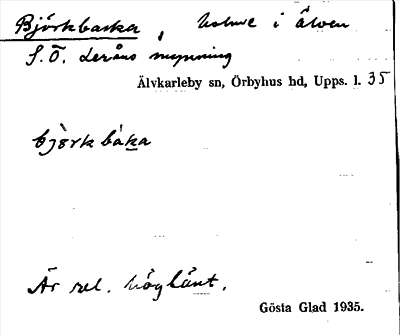 Björkbacka, holme i älven
S.Ö. Leråns mynning
Älvkarleby sn, Örbyhus hd, Upps. l. 35
bjö̀rkbàka
Är rel. höglänt.
Gösta Glad 1935.